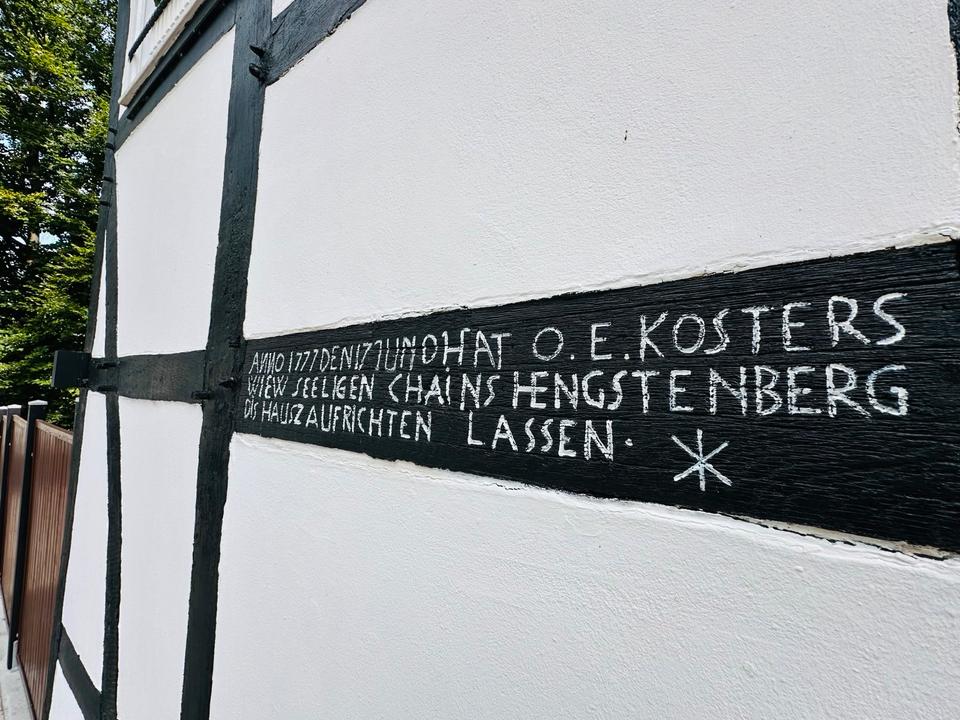 ANNO 1777 DEN 17 JUNO HAT O. E. KOSTERS
WIEW SEELIGEN CHAINS HENGSTENBERG
DIS HAUS ZAUFRICHTEN LASSEN.